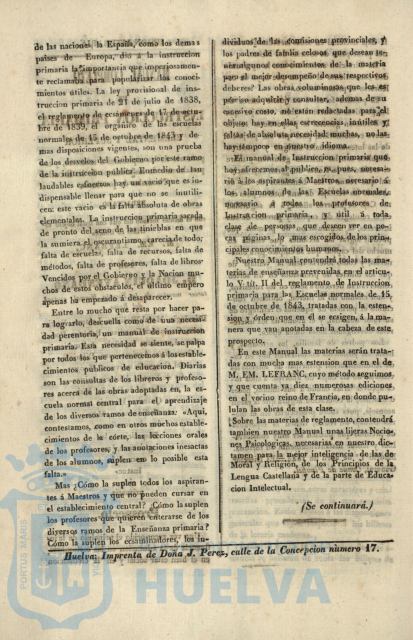 de las naciones la España, como los demas
paises de Europa, dió á la instruccion
primaria la importancia que imperiosamen-
te reclamaba para popularizar los conoci-
mientos útiles. La ley provisional de ins-
truccion primaria de 21 de julio de 1838,
el reglamento de ecsámenes de 17 de octu-
bre de 1839, el orgánico de las escuelas
normales de 15 de octubre de 1843 y de-
mas disposiciones vigentes, son una prueba
de los desvelos del Gobierno por este ramo
de la instruccion pública. Enmedio de tan
laudables esfuerzos hay un vacio que es in-
dispensable llenar para que no se inutili-
cen: este vacio es la falta absoluta de obras
elementales. La instruccion primaria sacada
de pronto del seno de las tinieblas en que
la sumiera el oscurantismo, carecia de todo;
falta de escuelas, falta de recursos, falta de
métodos, falta de profesores, falta de libros.
Vencidos por el Gobierno y la Nacion mu-
chos de estos obstáculos, el último empero
apenas ha empezado á desaparecer.
Entre lo mucho que resta por hacer pa-
ra lograrlo, descuella como de una necesi-
dad perentoria, un manual de instruccion
primaria. Esta necesidad se siente, se palpa
por todos los que pertenecemos á los estable-
cimientos públicos de educacion. Diarias
son las consultas de los libreros y profeso-
res acerca de las obras adoptadas en la es-
cuela normal central para el aprendizaje
de los diversos ramos de enseñanza: «Aqui,
contestamos, como en otros muchos estable-
cimientos de la córte, las lecciones orales
de los profesores, y las anotaciones inecsactas
de los alumnos, suplen en lo posible esta
falta.»
Mas ¿Cómo la suplen todos los aspiran-
tes á Maestros y que no pueden cursar en
el establecimiento central? ¿Cómo la suplen
los profesores que quieren enterarse de los
diversos ramos de la Enseñanza primaria?
Cómo la suplen los ecsaminadores, los in-
dividuos de las comisiones provinciales, y
los padres de familia celosos que desean te-
ner algunos conocimientos de la materia
para el mejor desempeño de sus respectivos
deberes? Las obras voluminosas que les es
preciso adquirir y consultar, ademas de su
escesivo costo, no están redactadas para el
objeto: hay en ellas escrecencias, inútiles y
faltas de absoluta necesidad; muchas, no las
hay tampoco en nuestro idioma.
El manual de Instruccion primaria que
hoy ofrecemos al público, es, pues, necesa-
rio á los aspirantes á Maestros, necesario á
los alumnos de las Escuelas normales,
necesario á todos los profesores de
Instruccion primaria, y útil á toda
clase de personas, que deseen ver en po-
cas páginas, lo mas escogido de los prin-
cipales conocimientos humanos.
Nuestro Manual contendrá todas las ma-
terias de enseñanza prevenidas en el artícu-
lo V tít. II del reglamento de Instruccion
primaria para las Escuelas normales de 15
de octubre de 1843, tratadas con la esten-
sion y órden que en él se ecsigen, á la ma-
nera que van anotadas en la cabeza de este
prospecto.
En este Manual las materias serán trata-
das con mucha mas estension que en el de
M. EM. LEFRANC, cuyo método seguimos
y que cuenta ya diez numerosas ediciones
en el vecino reino de Francia, en donde pu-
lulan las obras de esta clase.
Sobre las materias de reglamento, contendrá
tambien nuestro Manual unas lijeras Nocio-
nes Psicologicas, necesarias en nuestro dic-
tamen para la mejor inteligencia de las de
Moral y Religion, de los Principios de la
Lengua Castellana y de la parte de Educa-
cion Intelectual.
(Se continuará.)
Huelva: Imprenta de Doña J. Perez, calle de la Concepcion número 17.
PORTUS MARIS
HUELVA